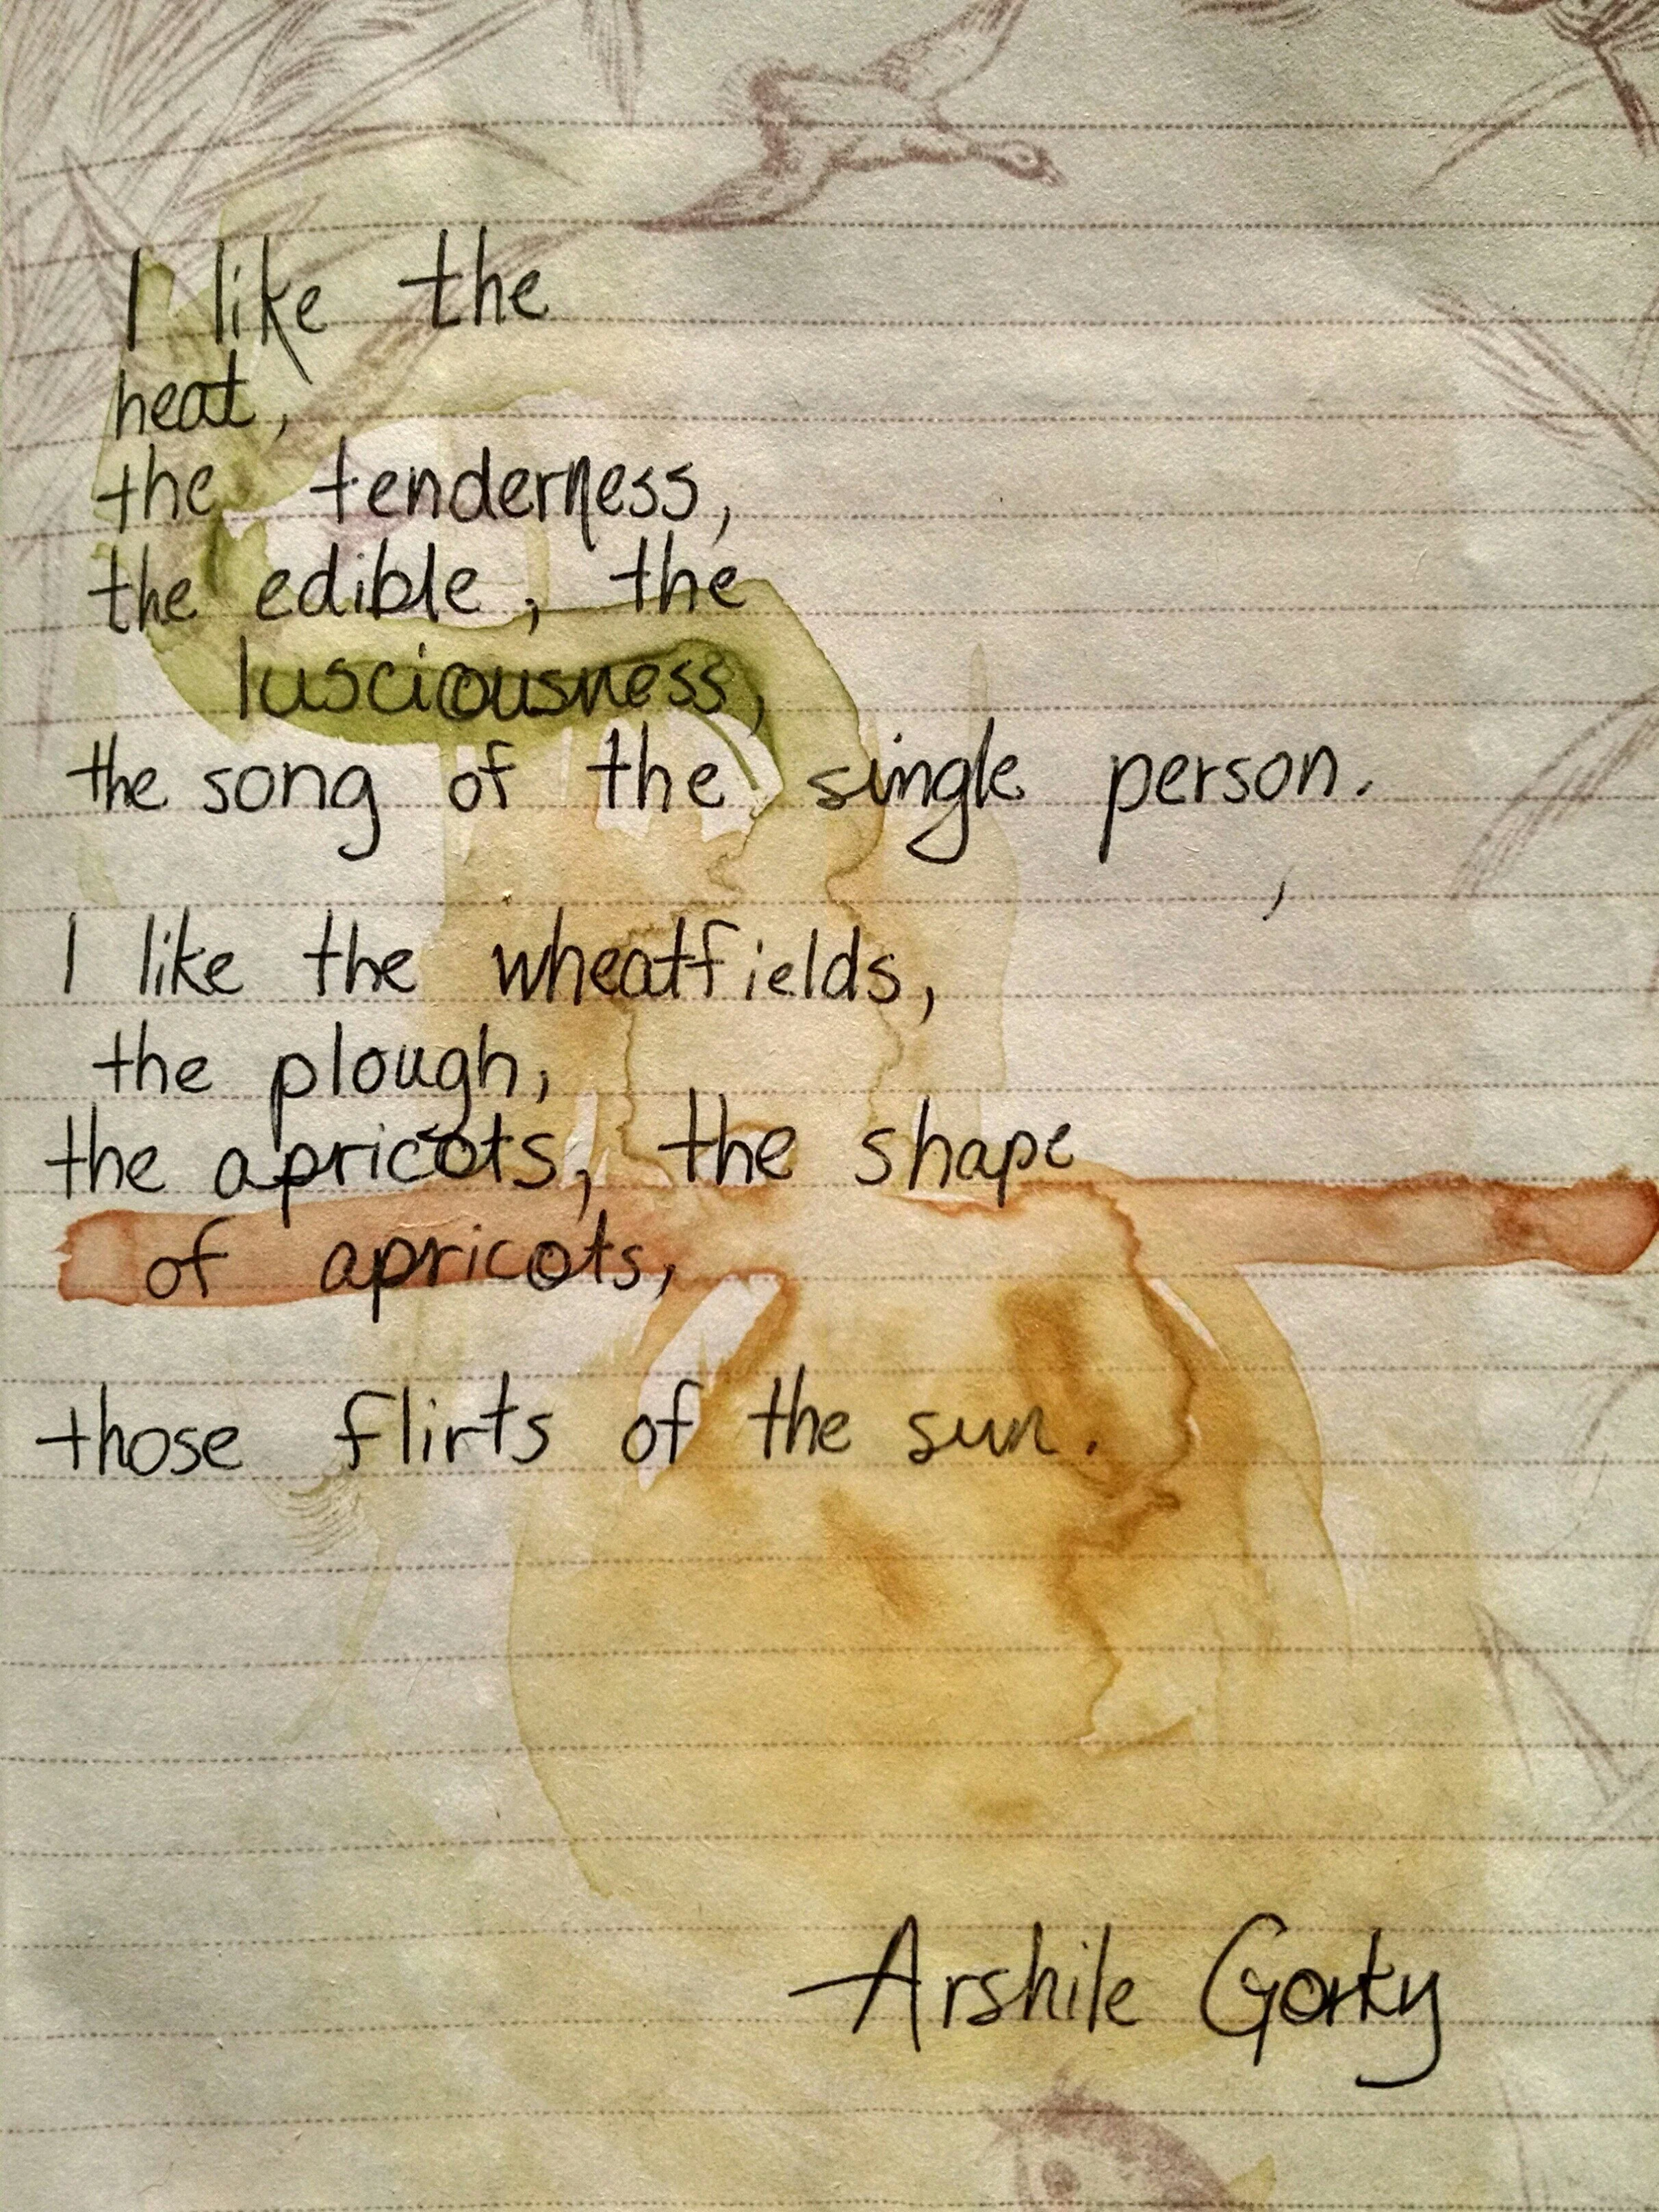 I like the
heat,
the tenderness,
the edible, the
lusciousness,
the song of the single person.
I like the wheatfields,
the plough,
the apricots, the shape
of apricots,
those flirts of the sun.
Arshile Gorky